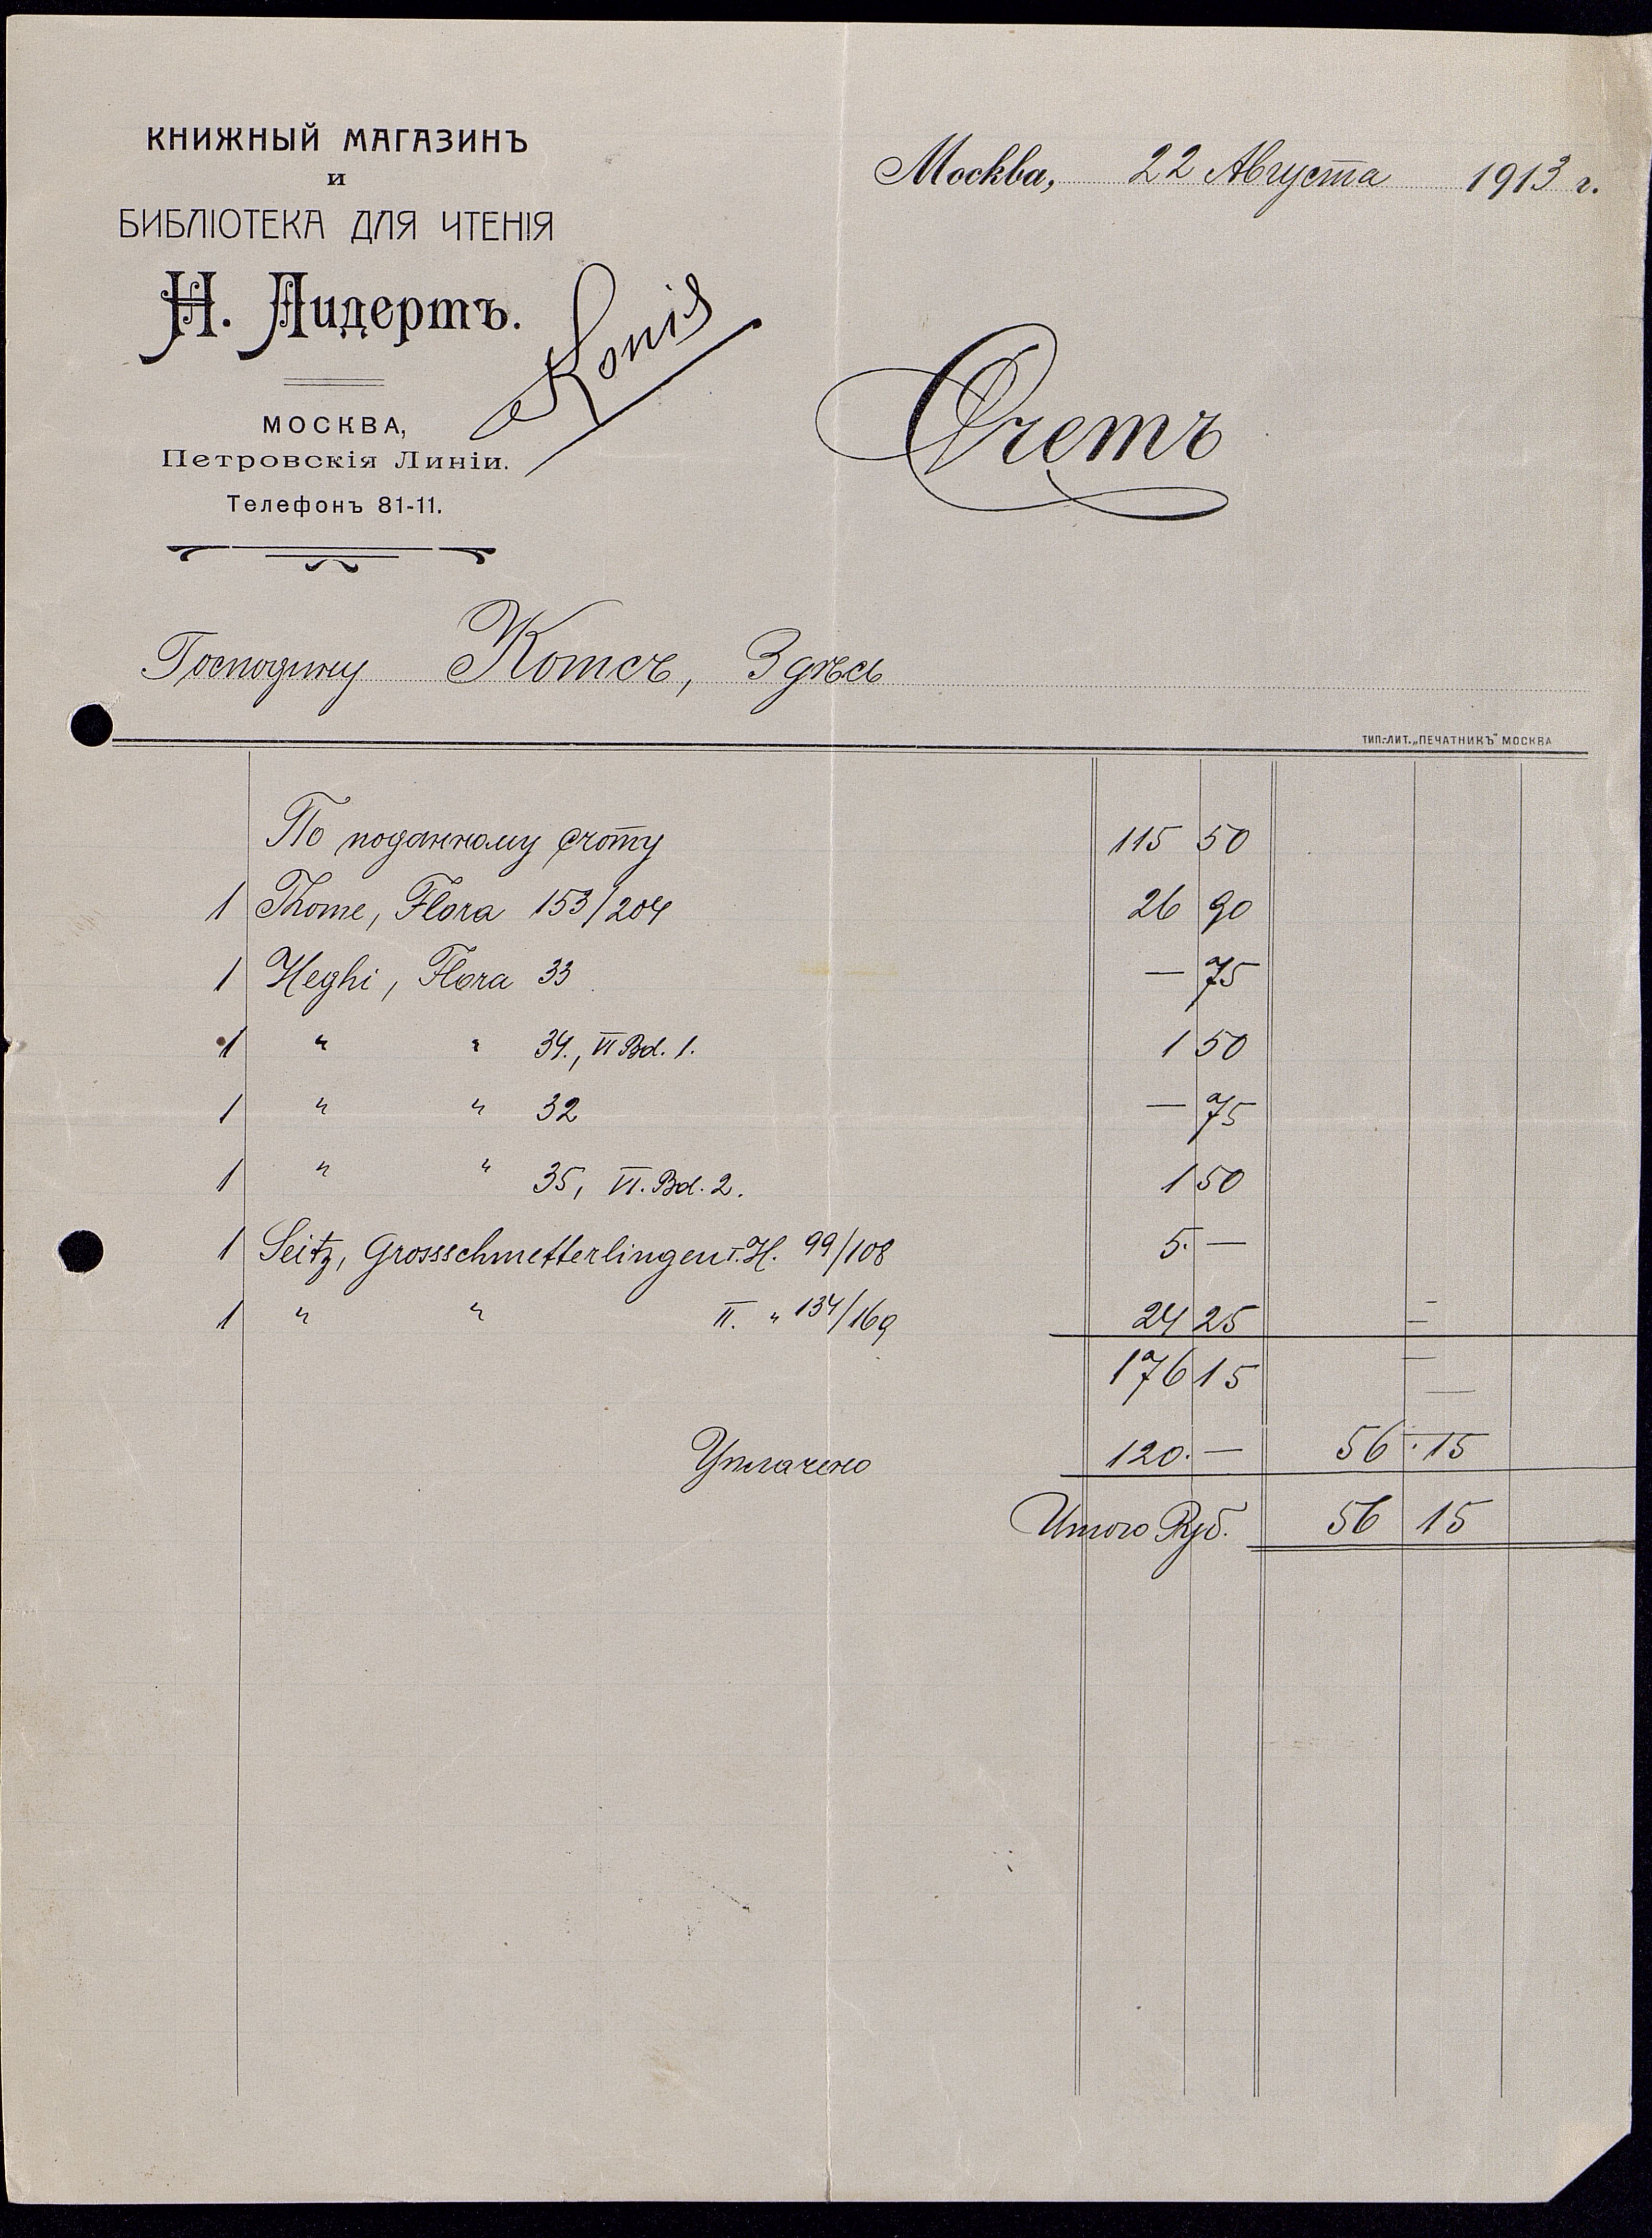 КНИЖНЫЙ МАГАЗИНЪ
и
БИБЛІОТЕКА ДЛЯ ЧТЕНІЯ
Н. Лидертъ.
МОСКВА,
Петровскія Линіи.
Телефонъ 81-11.
Kopie
Москва, 22 Августа 1913 г.
Счетъ
Господину Котсъ, Здѣсь
ТИП.-ЛИТ. „ПЕЧАТНИКЪ" МОСКВА
По поданному счоту 115 50
1 Thome, Flora 153/204 26 90
1 Heghi, Flora 33 — 75
1 " " 34., VI Bd. 1. 1 50
1 " " 32 — 75
1 " " 35, VI. Bd. 2. 1 50
1 Seitz, Grossschmetterlingen I. H. 99/108 5. —
1 " " II. " 134/169 24 25
176 15
Уплачено 120. — 56 . 15
Итого Руб. 56 15